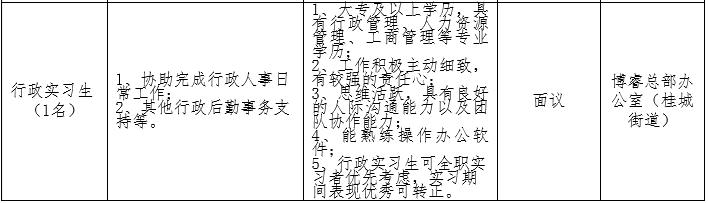 行政实习生
（1名）
1、协助完成行政人事日
常工作；
2、其他行政后勤事务支
持等。
1、大专及以上学历，具
有行政管理、人力资源
管理、工商管理等专业
学历；
2、工作积极主动细致，
有较强的责任心；
3、思维活跃，具有良好
的人际沟通能力以及团
队协作能力；
4、能熟练操作办公软
件；
5、行政实习生可全职实
习者优先考虑，实习期
间表现优秀可转正。
面议
博睿总部办
公室（桂城
街道）